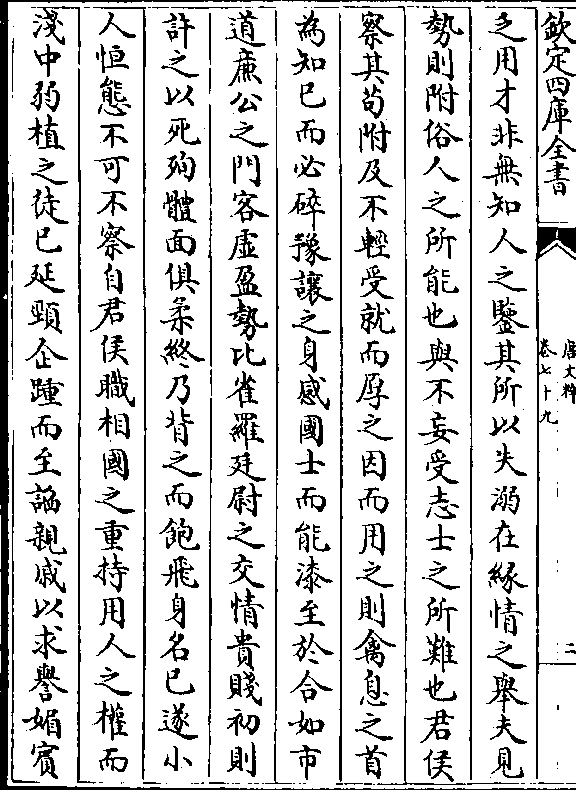 欽定四庫全書
唐文粹
卷七十九
二
乏用才非無知人之鑒其所以失溺在緣情之舉夫見
勢則附俗人之所能也與不妄受志士之所難也君侯
察其苟附及不輕受就而厚之因而用之則禽息之首
為知已而必碎豫讓之身感國士而能漆至於合如市
道廉公之門客虚盈勢比雀羅廷尉之交情貴賤初則
許之以死殉體面俱柔終乃背之而飽飛身名已遂小
人恒態不可不察自君侯職相國之重持用人之權而
淺中弱植之徒已延頸企踵而至諂親戚以求譽媚賓